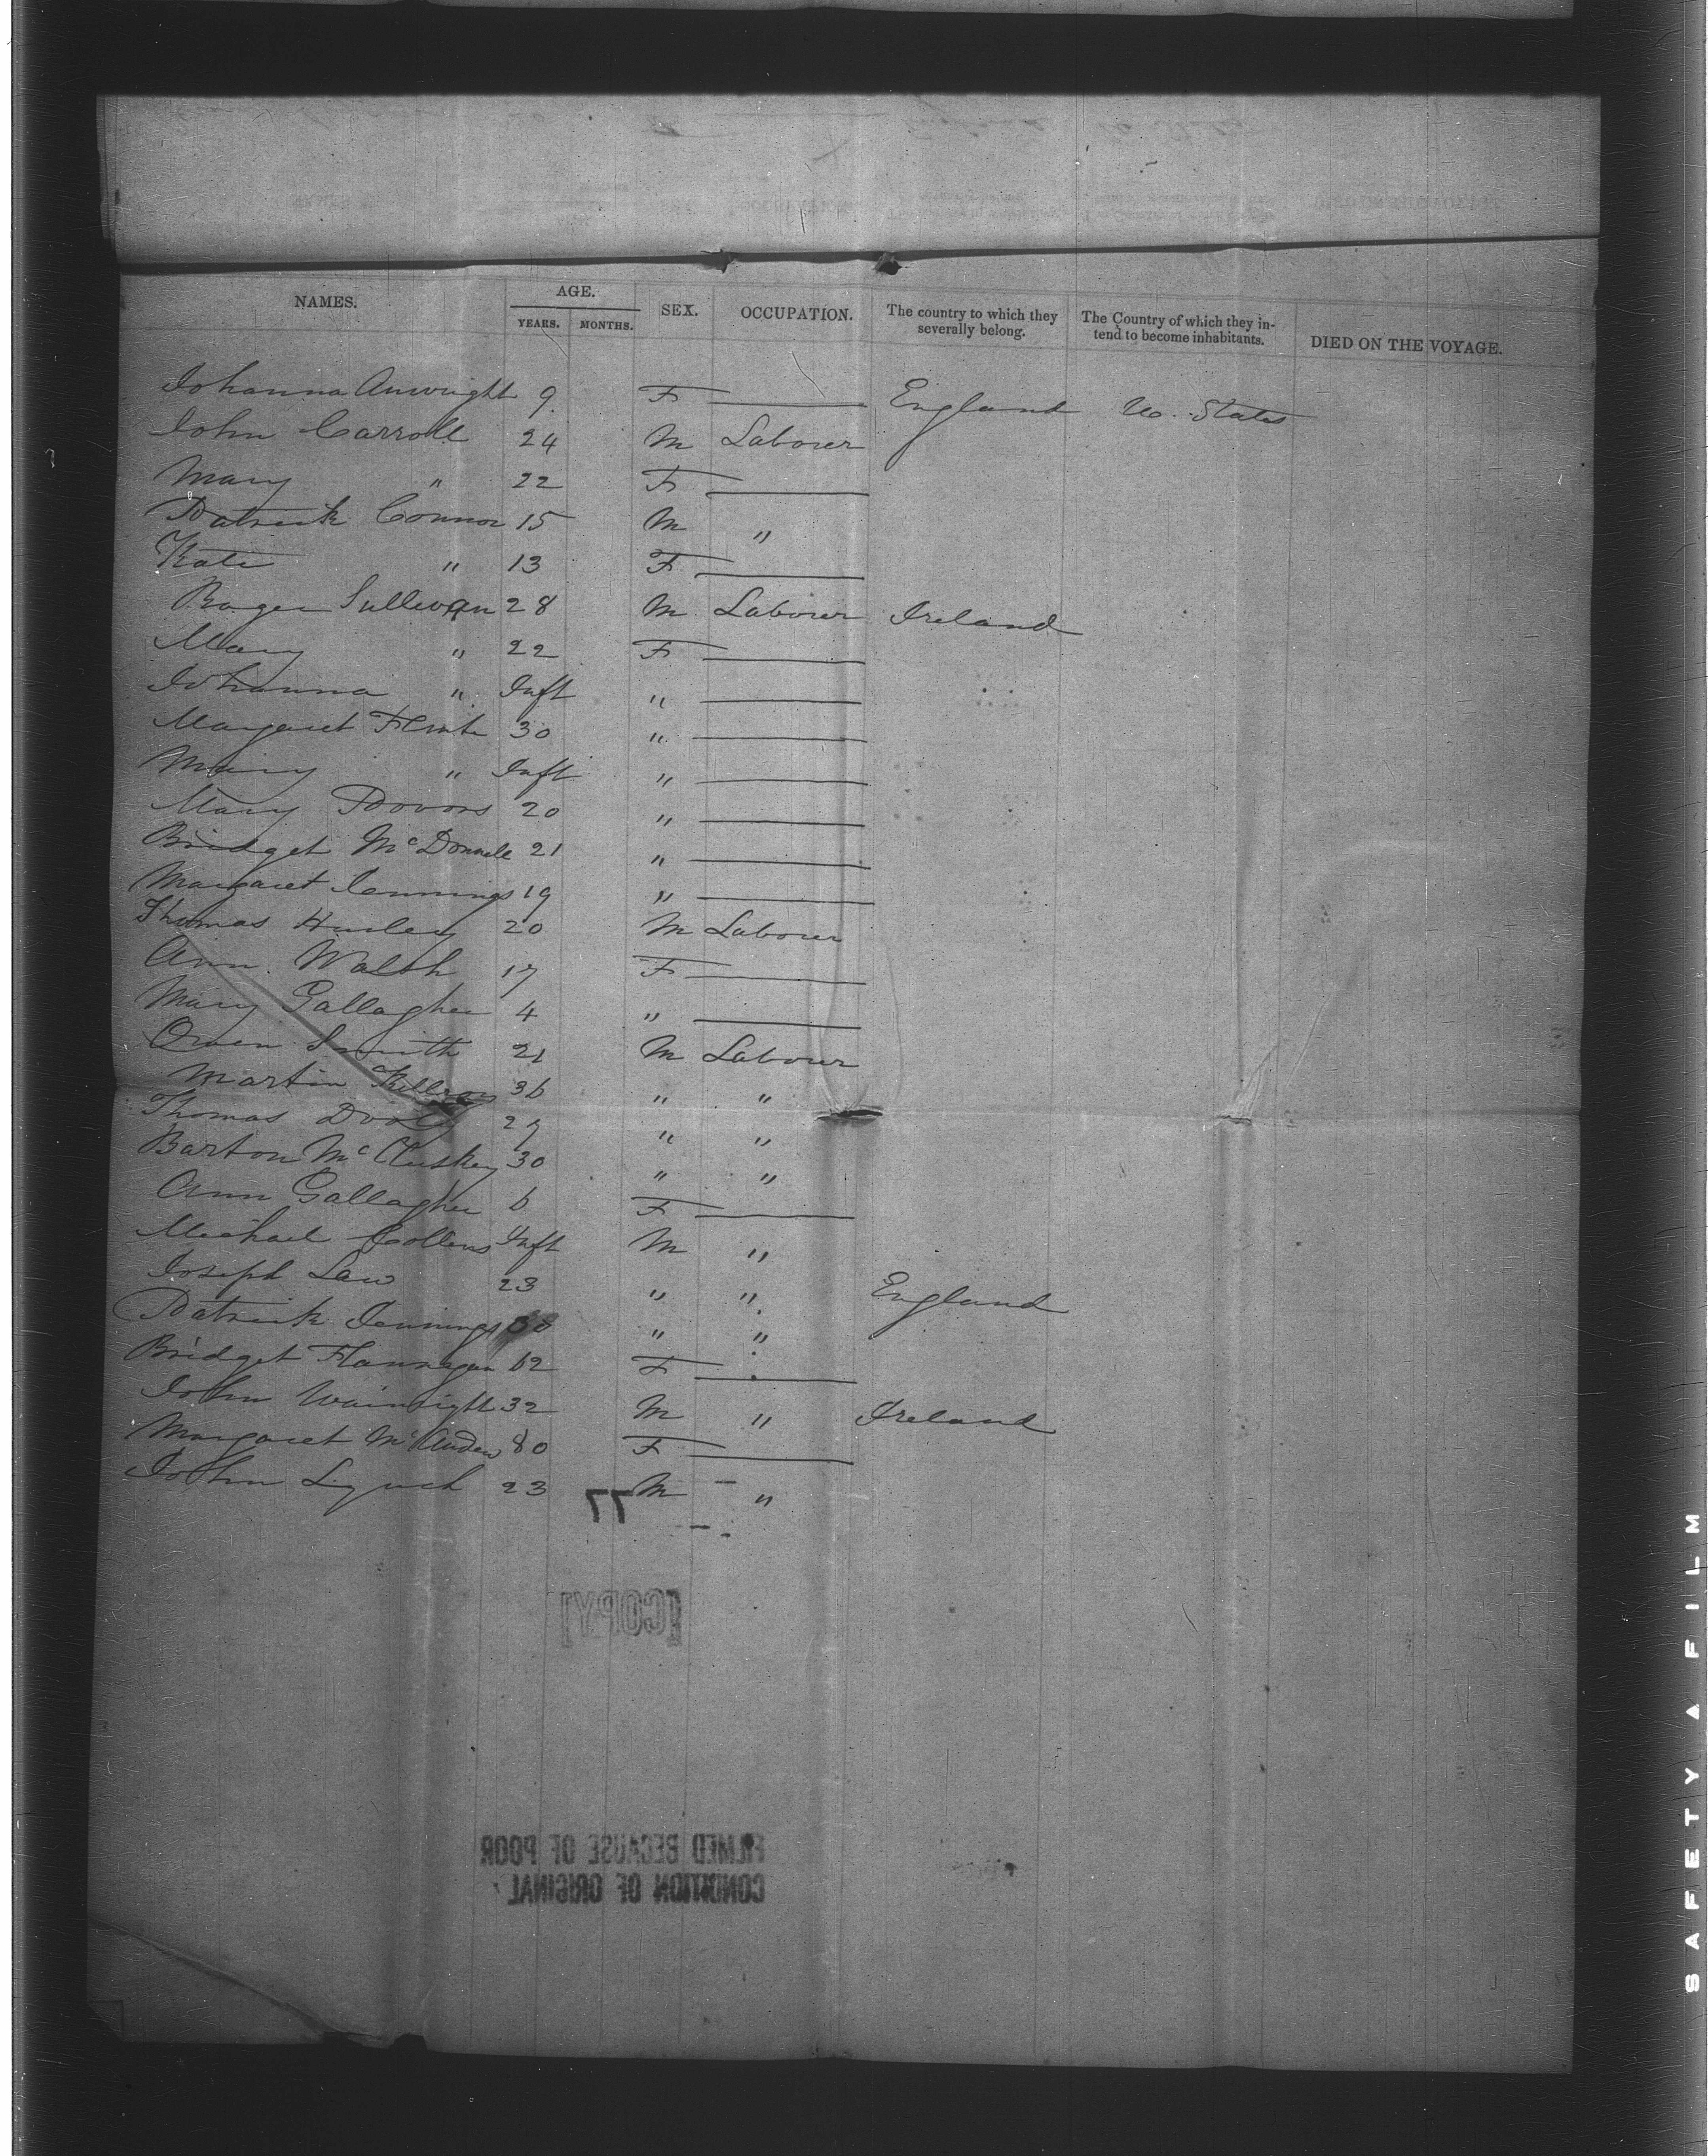 NAMES. AGE. YEARS. MONTHS. SEX. OCCUPATION. The country to which they severally belong. The Country of which they intend to become inhabitants. DIED ON THE VOYAGE.
Johanna 9 F England U. States
John Carroll 24 M Labourer
Mary " 22 F
Patrick Connor 15 M "
Kate " 13 F
Roger Sullivan 28 M Labourer Ireland
Mary " 22 F
Johanna " Inft "
Margaret 30 "
Mary " Inft "
Mary 20 "
Bridget McDonnell 21 "
Margaret Jennings 19 "
Thomas Hurley 20 M Labourer
Ann Walsh 17 F
Mary Gallagher 4 "
Owen Smith 21 M Labourer
Martin 36 " "
Thomas " "
Barton McCluskey 30 " "
Ann Gallagher 6 F
Michael Collens Inft M "
Joseph Law 23 " " England
Patrick Jennings " "
Bridget Flannagan 62 F
John Wainright 32 M " Ireland
Margaret F
John Lynch 23 M "
77
[COPY]
FILMED BECAUSE OF POOR
CONDITION OF ORIGINAL
SAFETY A FILM